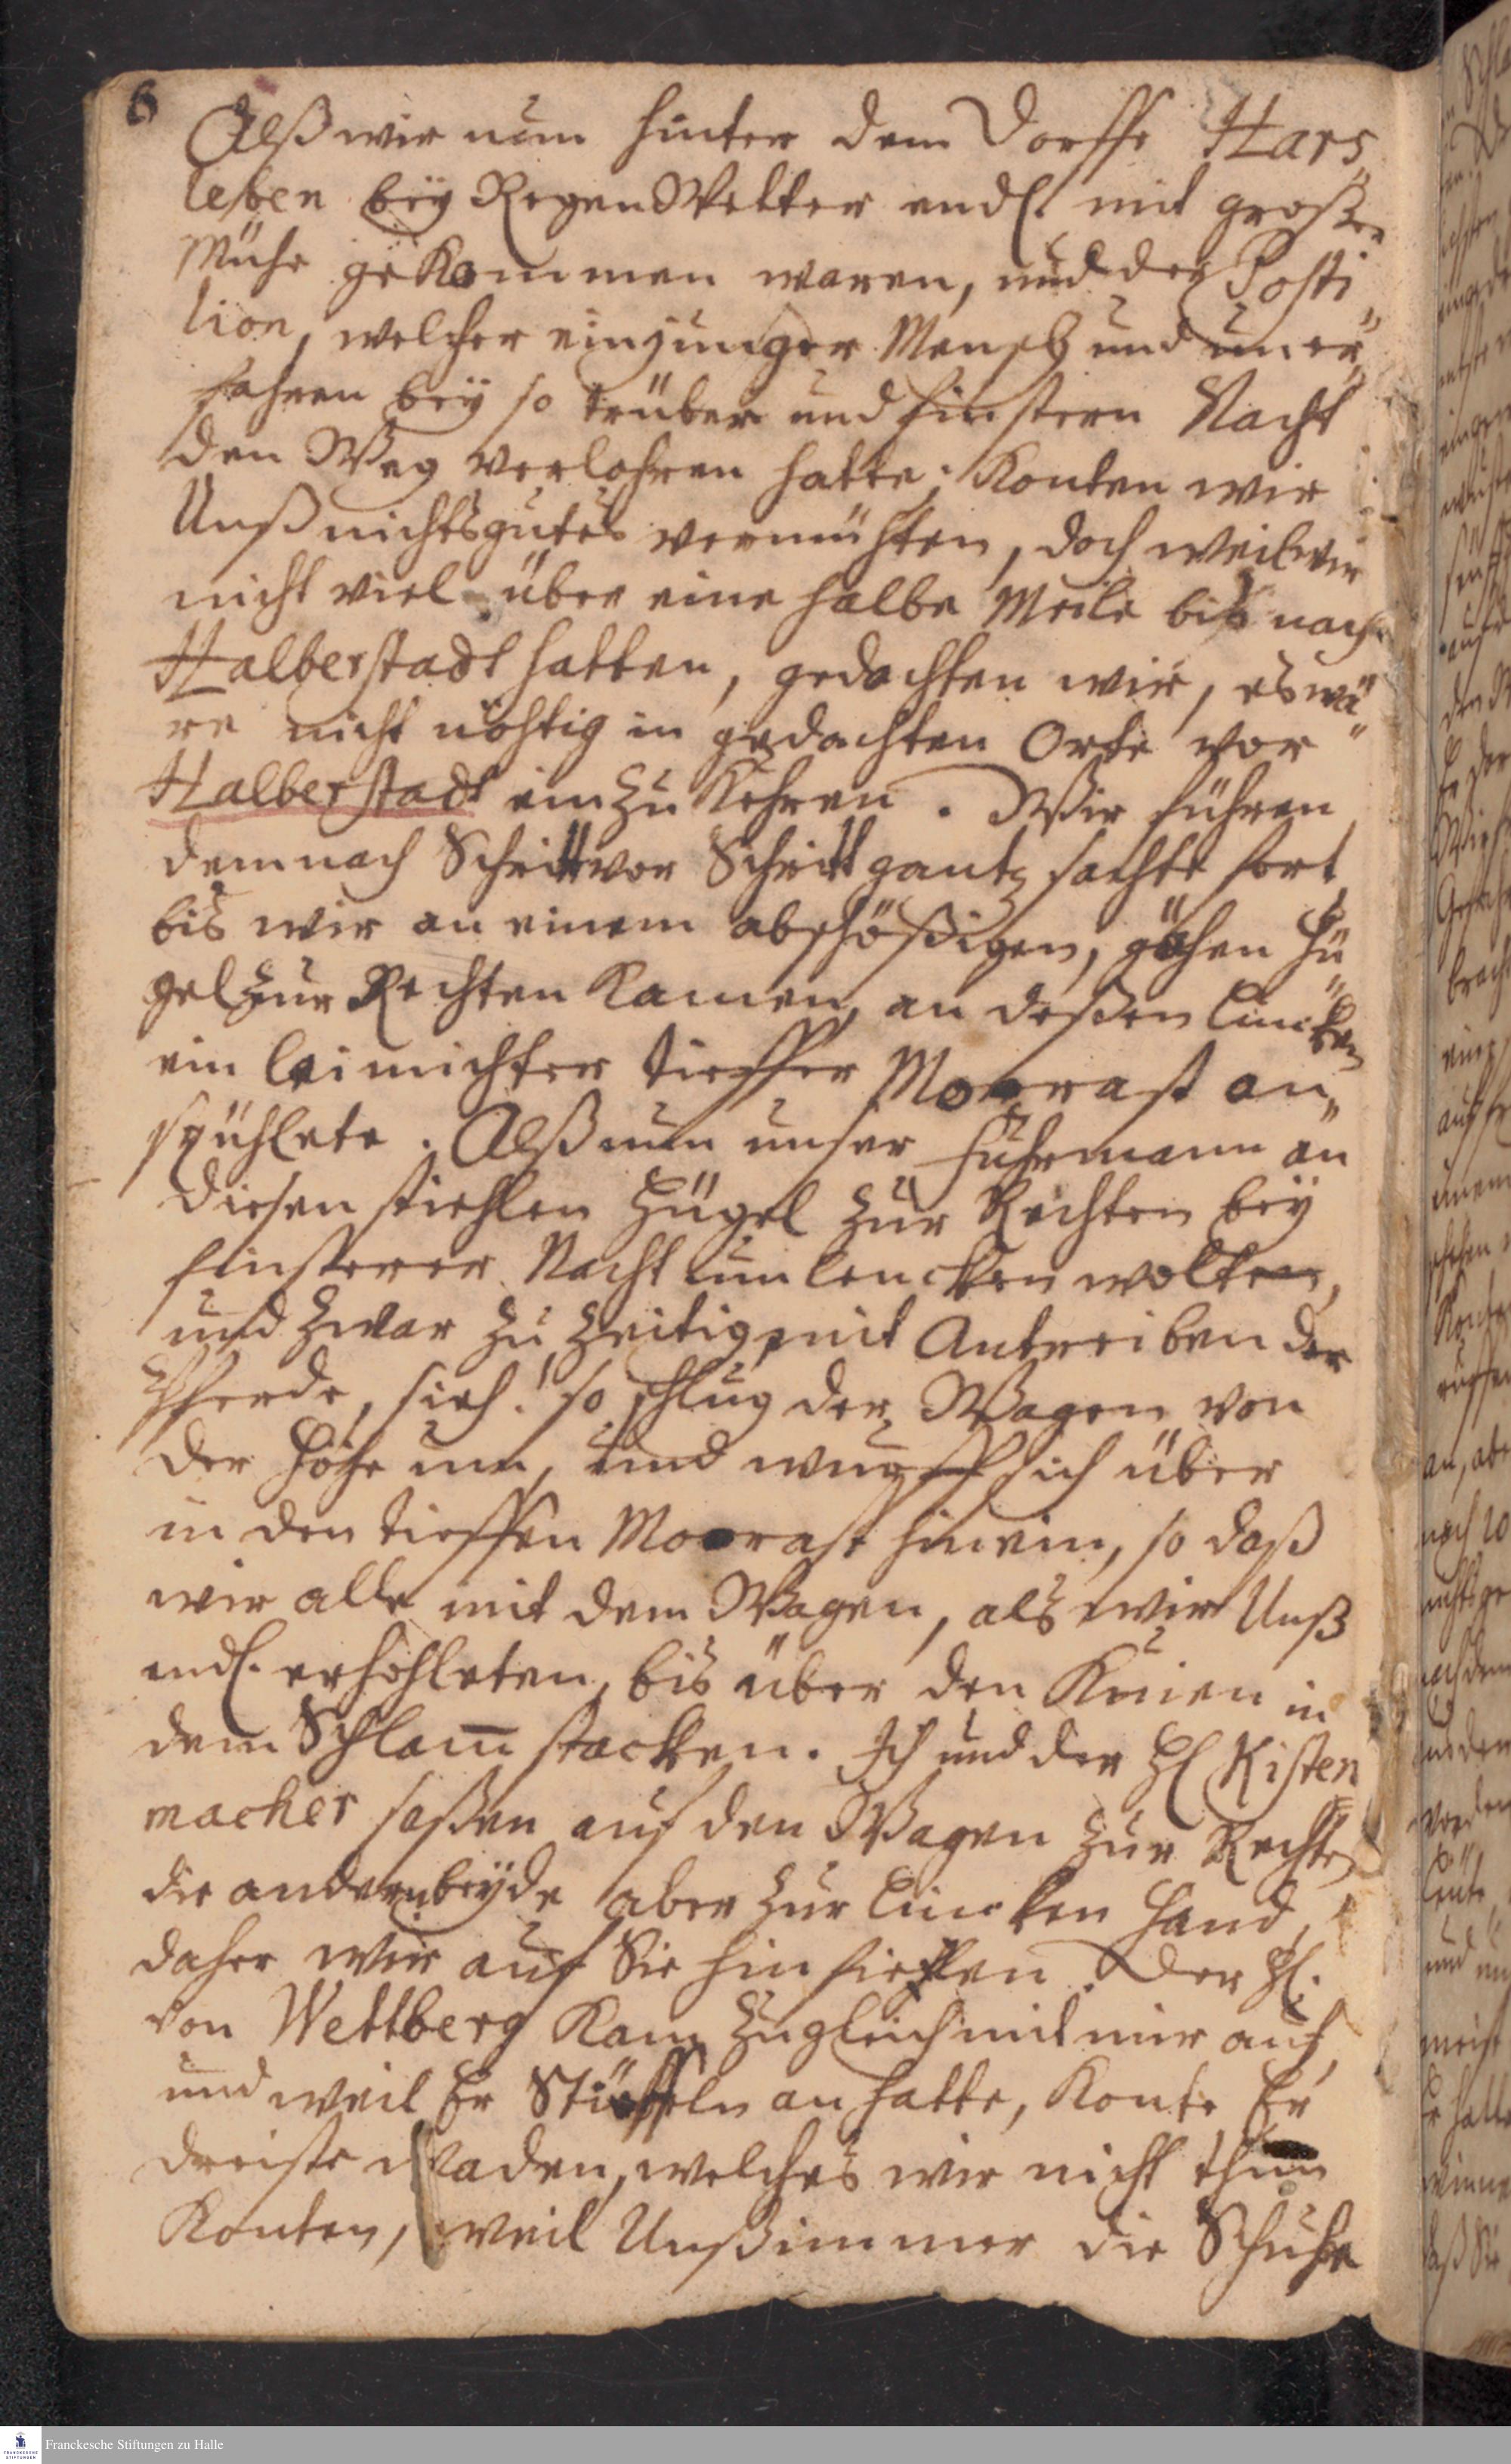 6
Alß wir nun hinter dem Dorffe Hars„
leben beÿ Regen Wetter endl. mit großer
Mühe gekommen waren, und der Posti„
lion, welcher ein junger Mensch und uner„
fahren beÿ so trüber und finstern Nacht
den Weg verlohren hatte; konten wir
Unß nichts gutes vermuhten, doch weil wir
nicht viel über eine halbe Meile bis nach
Halberstadt hatten, gedachten wir, es wä„
re nicht nöhtig in gedachten Orte vor
Halberstadt einzukehren. Wir fuhren
demnach Schritt vor Schritt gantz sachte fort
bis wir an einem abschößigen, gähen Hü„
gel zur Rechten kamen, an deßen lincken
ein leimichter tieffer Moorast an„
spühlete. Alß nun unser Fuhrmann an
diesen stiehlen Hügel zur Rechten beÿ
finsterer Nacht umlencken wolten,
und zwar zu zeitig mit Antreiben der
Pferde, sieh! so schlug der Wagen von
der Höhe um, und wurff sich über
in den tieffen Moorast hinein, so daß
wir alle mit dem Wagen, als wir Unß
endl. erhohleten, bis über den Knien in
dem Schlam̅ stacken. Ich und der H. Kisten
macher saßen auf den Wagen zur Rechten
die andern beÿde aber zur Lincken Hand,
daher wir auf Sie hin fielen. Der H.
von Wettberg kam zugleich mit mir auf,
und weil Er Stieffeln an hatte, konte Er
dreiste waden, welches wir nicht thun
konten, weil Unß immer die Schuhe
Franckesche Stiftungen zu Halle